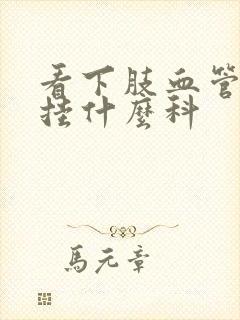 看下肢血管
挂什麼科
馬元章